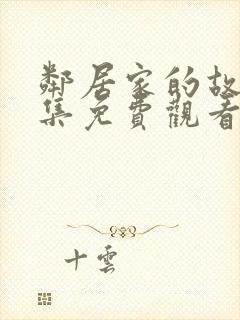 鄰居家的故
集免費觀看
十雲